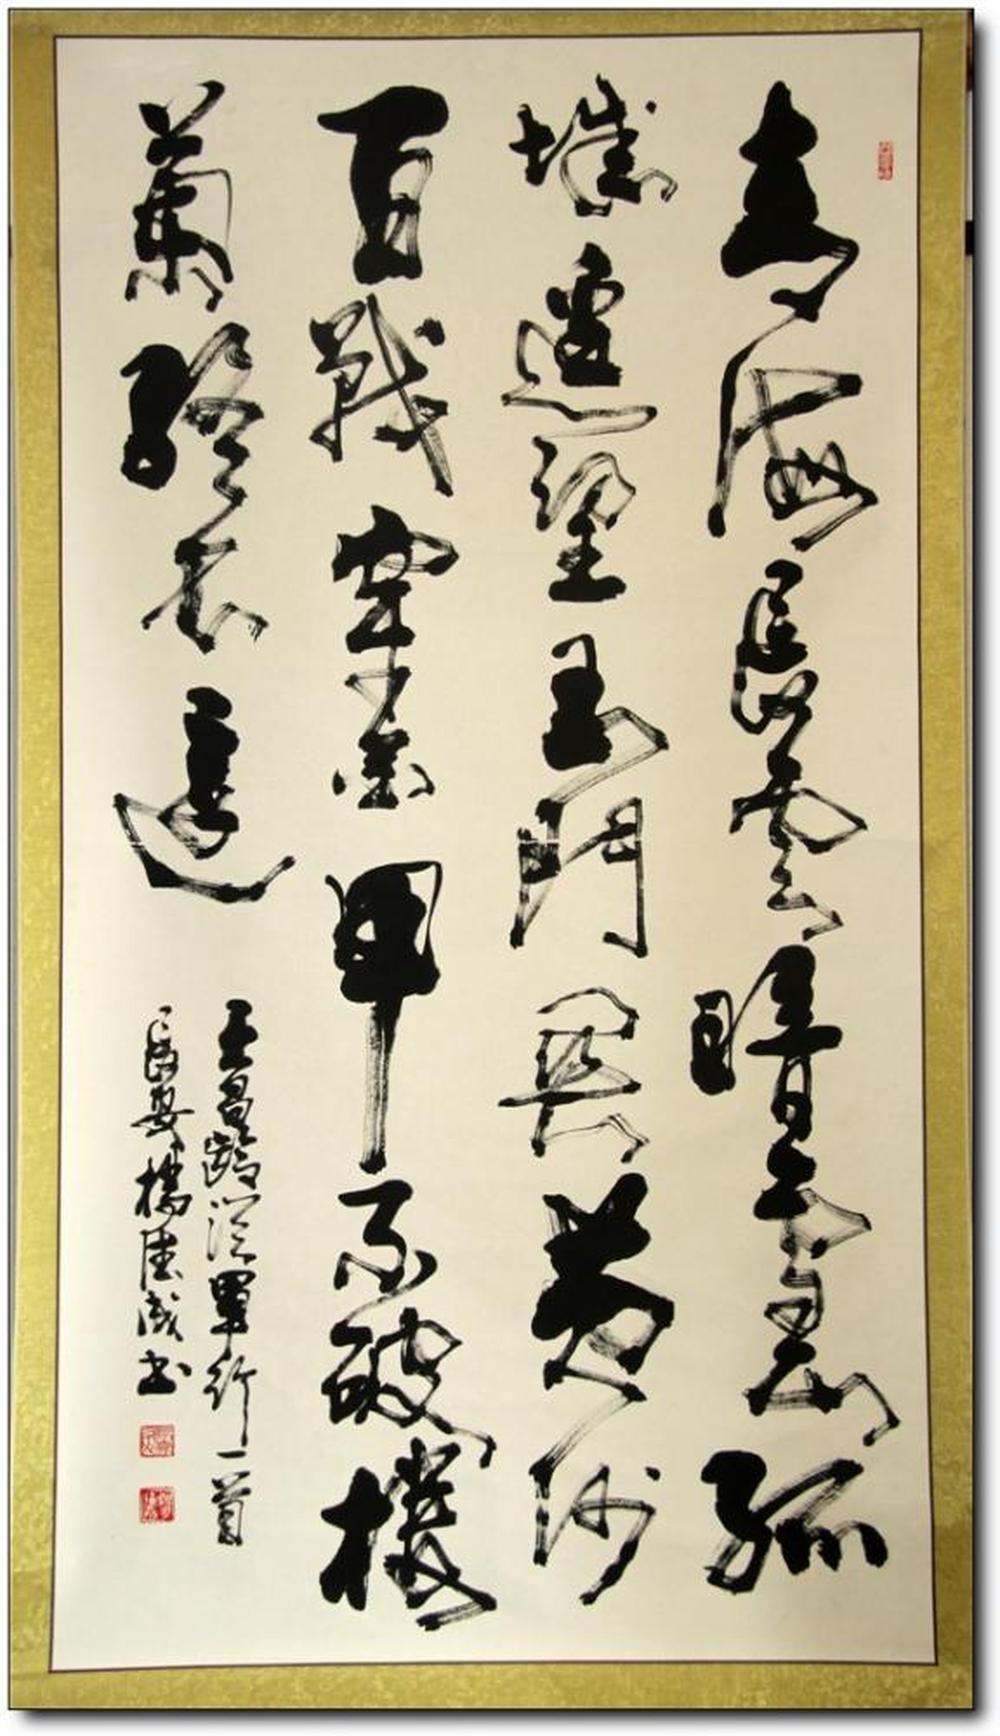 青海長雲暗雪山孤
城遥望玉門關黄沙
百戰穿金甲不破樓
蘭終不還
王昌齡從軍行一首
長安成书